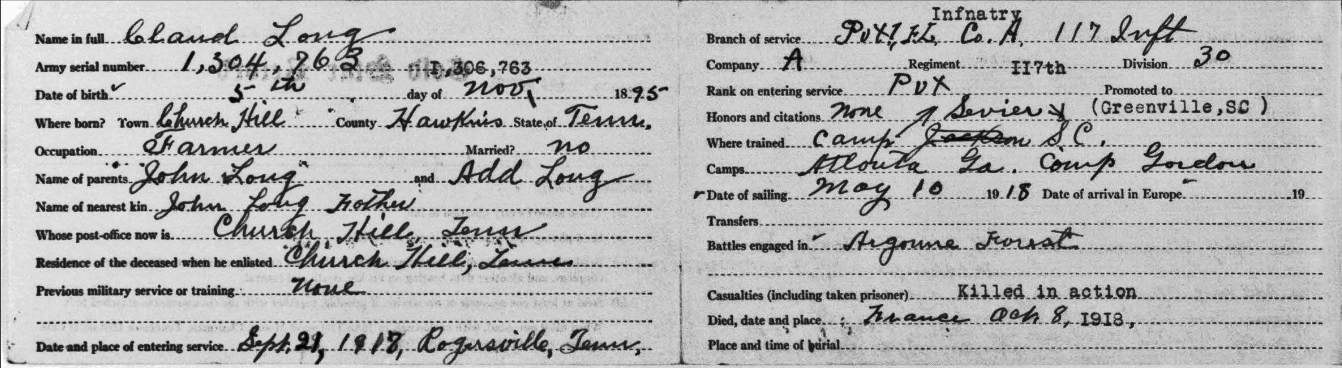 Name in full Claud Long
Army serial number 1,304,763 1,306,763
Date of birth 5th day of Nov, 1895
Where born? Town Church Hill County Hawkins State of Tenn.
Occupation Farmer Married? no
Name of parents John Long and Add Long
Name of nearest kin John Long Father
Whose post-office now is Church Hill, Tenn
Residence of the deceased when he enlisted Church Hill, Tenn
Previous military service or training none
Date and place of entering service Sept. 21, 1917, Rogersville, Tenn,
Infnatry
Branch of service Co. A, 117 Inft
Company A Regiment 117th Division 30
Rank on entering service Pvt Promoted to
Honors and citations None Sevier (Greenville,SC)
Where trained Camp Jackson S.C.
Camps Atlanta Ga. Camp Gordon
Date of sailing May 10 1918 Date of arrival in Europe 19
Transfers
Battles engaged in Argonne Forest
Casualties (including taken prisoner) Killed in action
Died, date and place, France Oct 8, 1918,
Place and time of burial